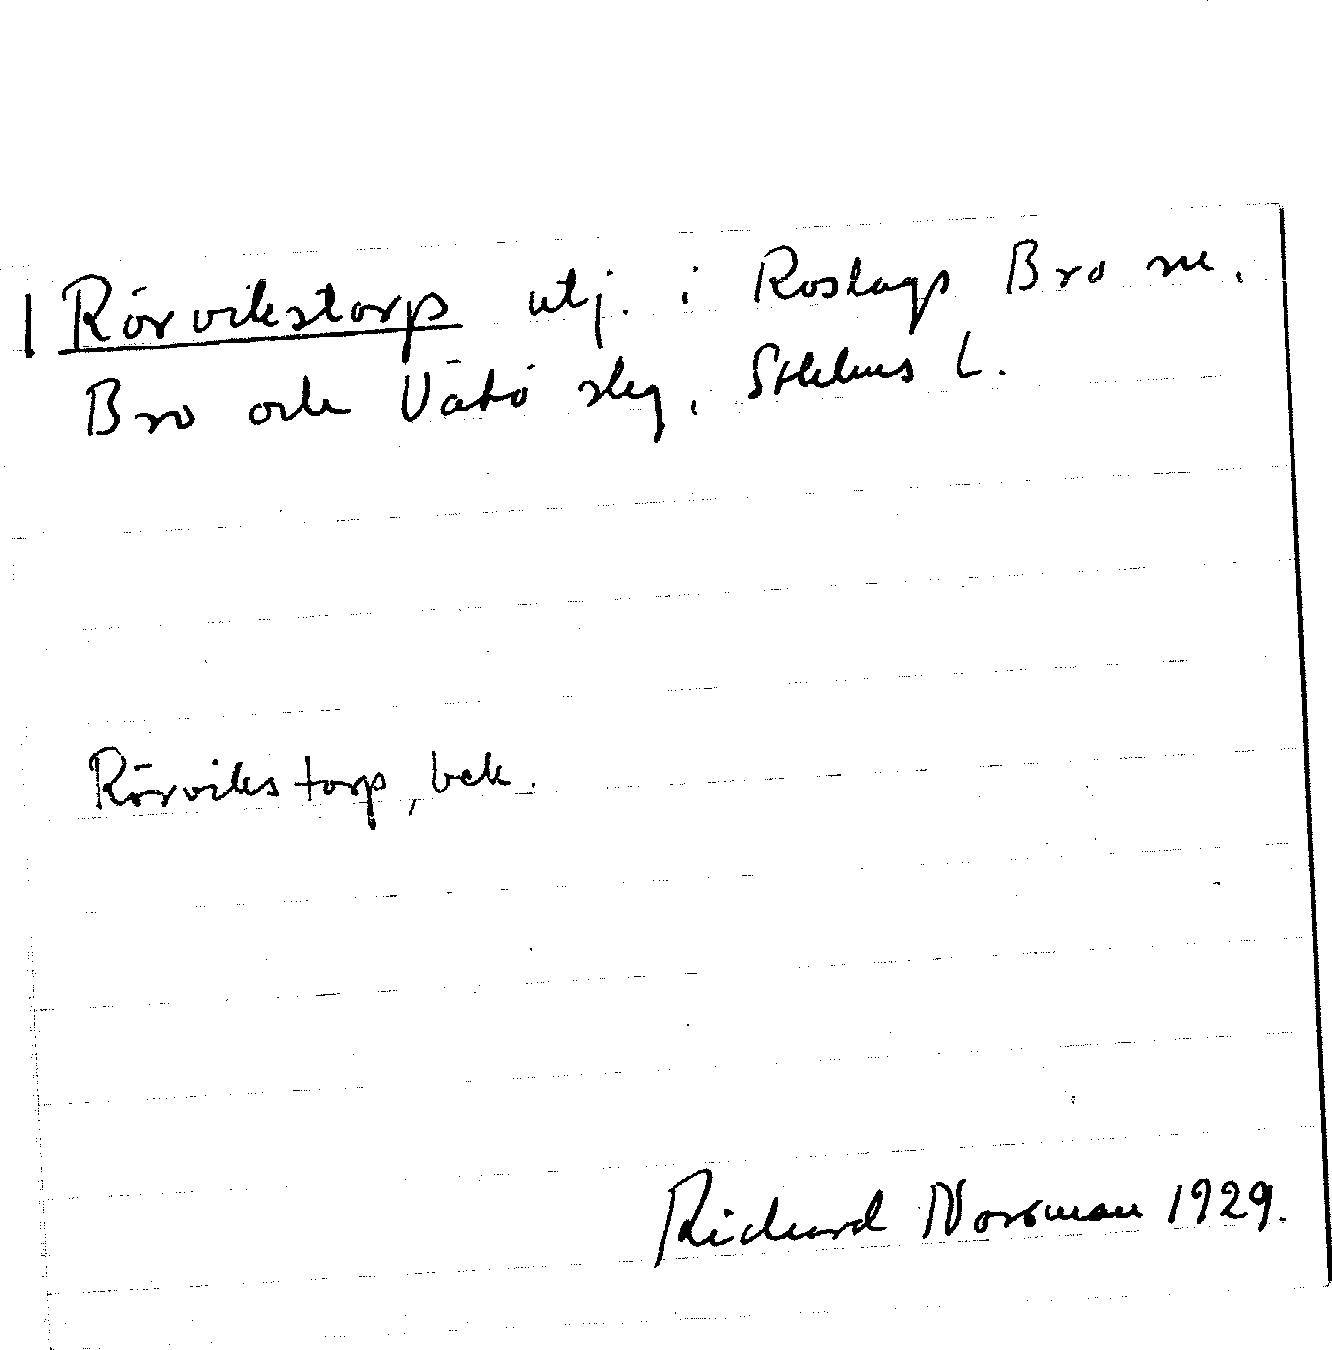 Rörvikstorp utj. i Roslags Bro sn.
Bro och Vätö slg, Sthlms L.
Rörvikstorp, bek.
Richard Norrman 1929.